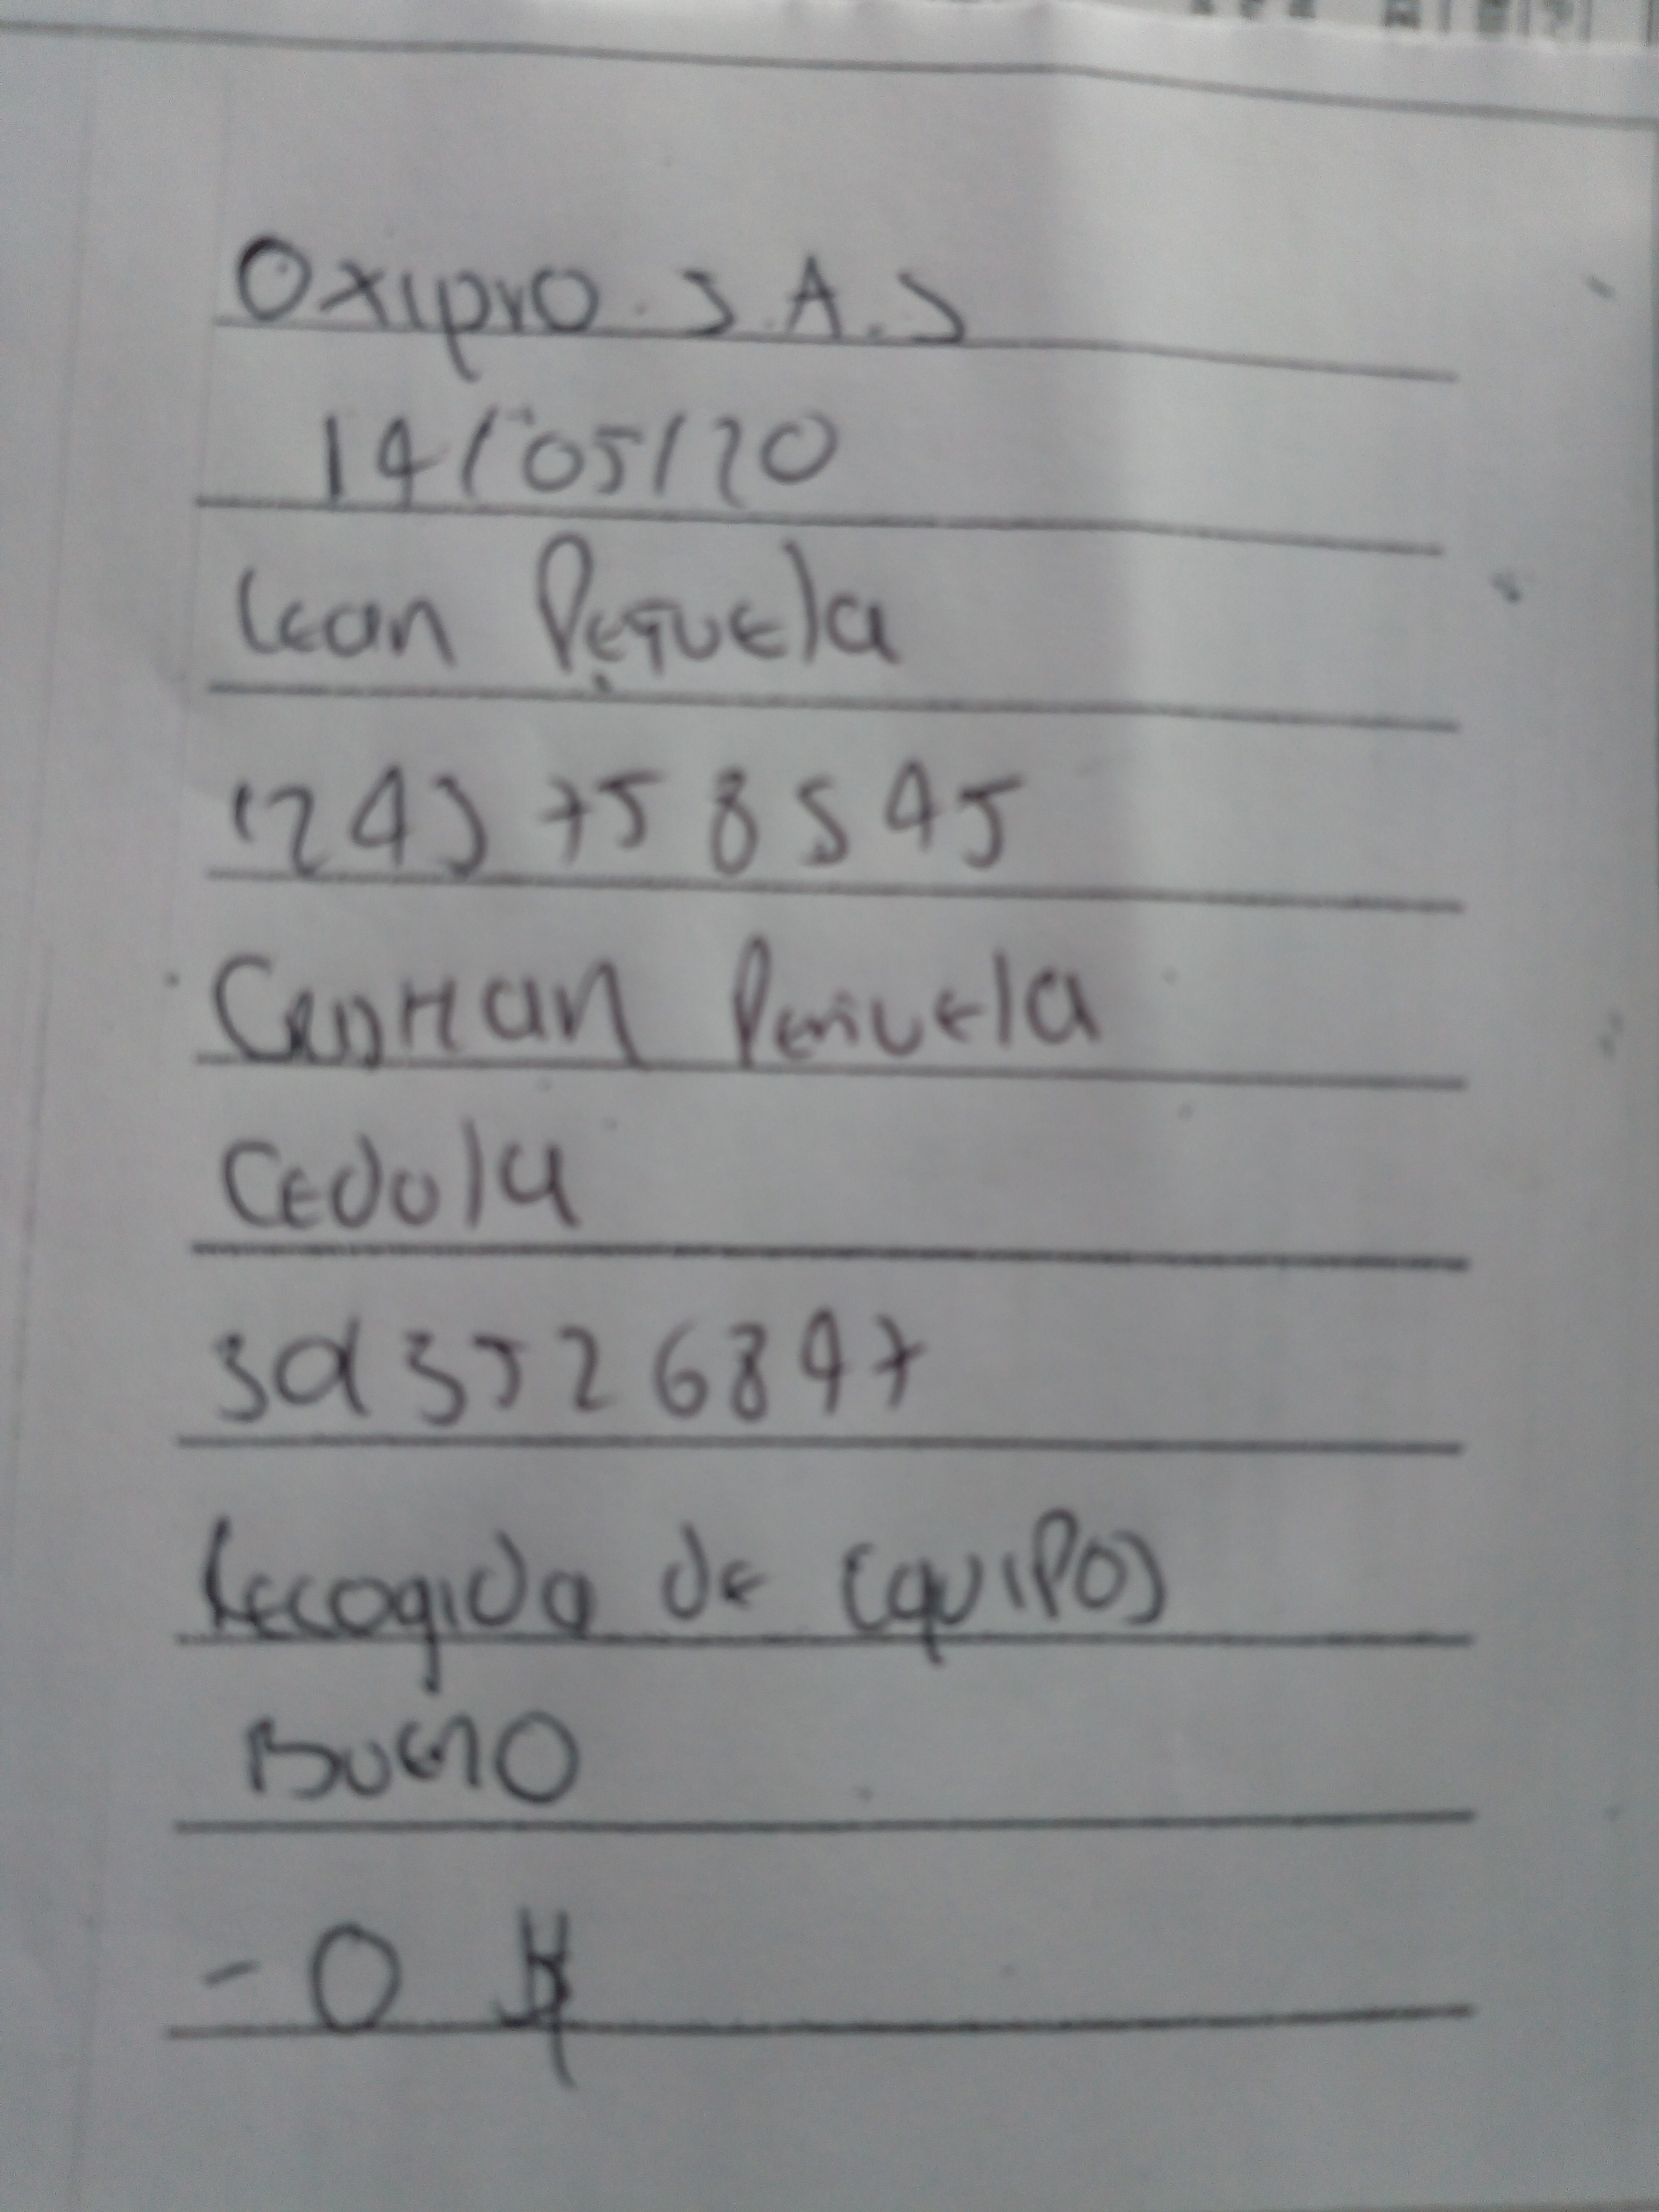 Oxipro. S.A.S
14/05/20
Lean Peñuela
1243758545
Cristian Peñuela
Cedula
3013526847
Recogida de Equipos
Bueno
- 0